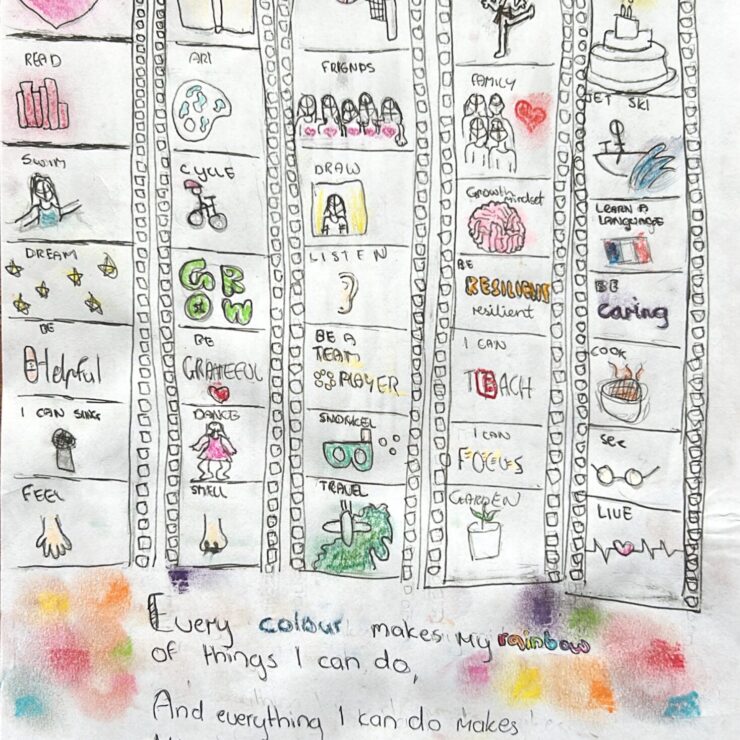 READ
SWIM
DREAM
BE
Helpful
I CAN SING
FEEL
ART
CYCLE
GR
OW
BE
GRATEFUL
DANCE
SMELL
FRIENDS
DRAW
LISTEN
BE A
TEAM
PLAYER
SNORKEL
TRAVEL
FAMILY
Growth
mindset
BE
RESILIENT
resilient
I CAN
TEACH
I CAN
FOCUS
GARDEN
JET SKI
LEARN A
LANGUAGE
BE
caring
COOK
SEE
LIVE
Every colour makes my rainbow
of things I can do,
And everything I can do makes